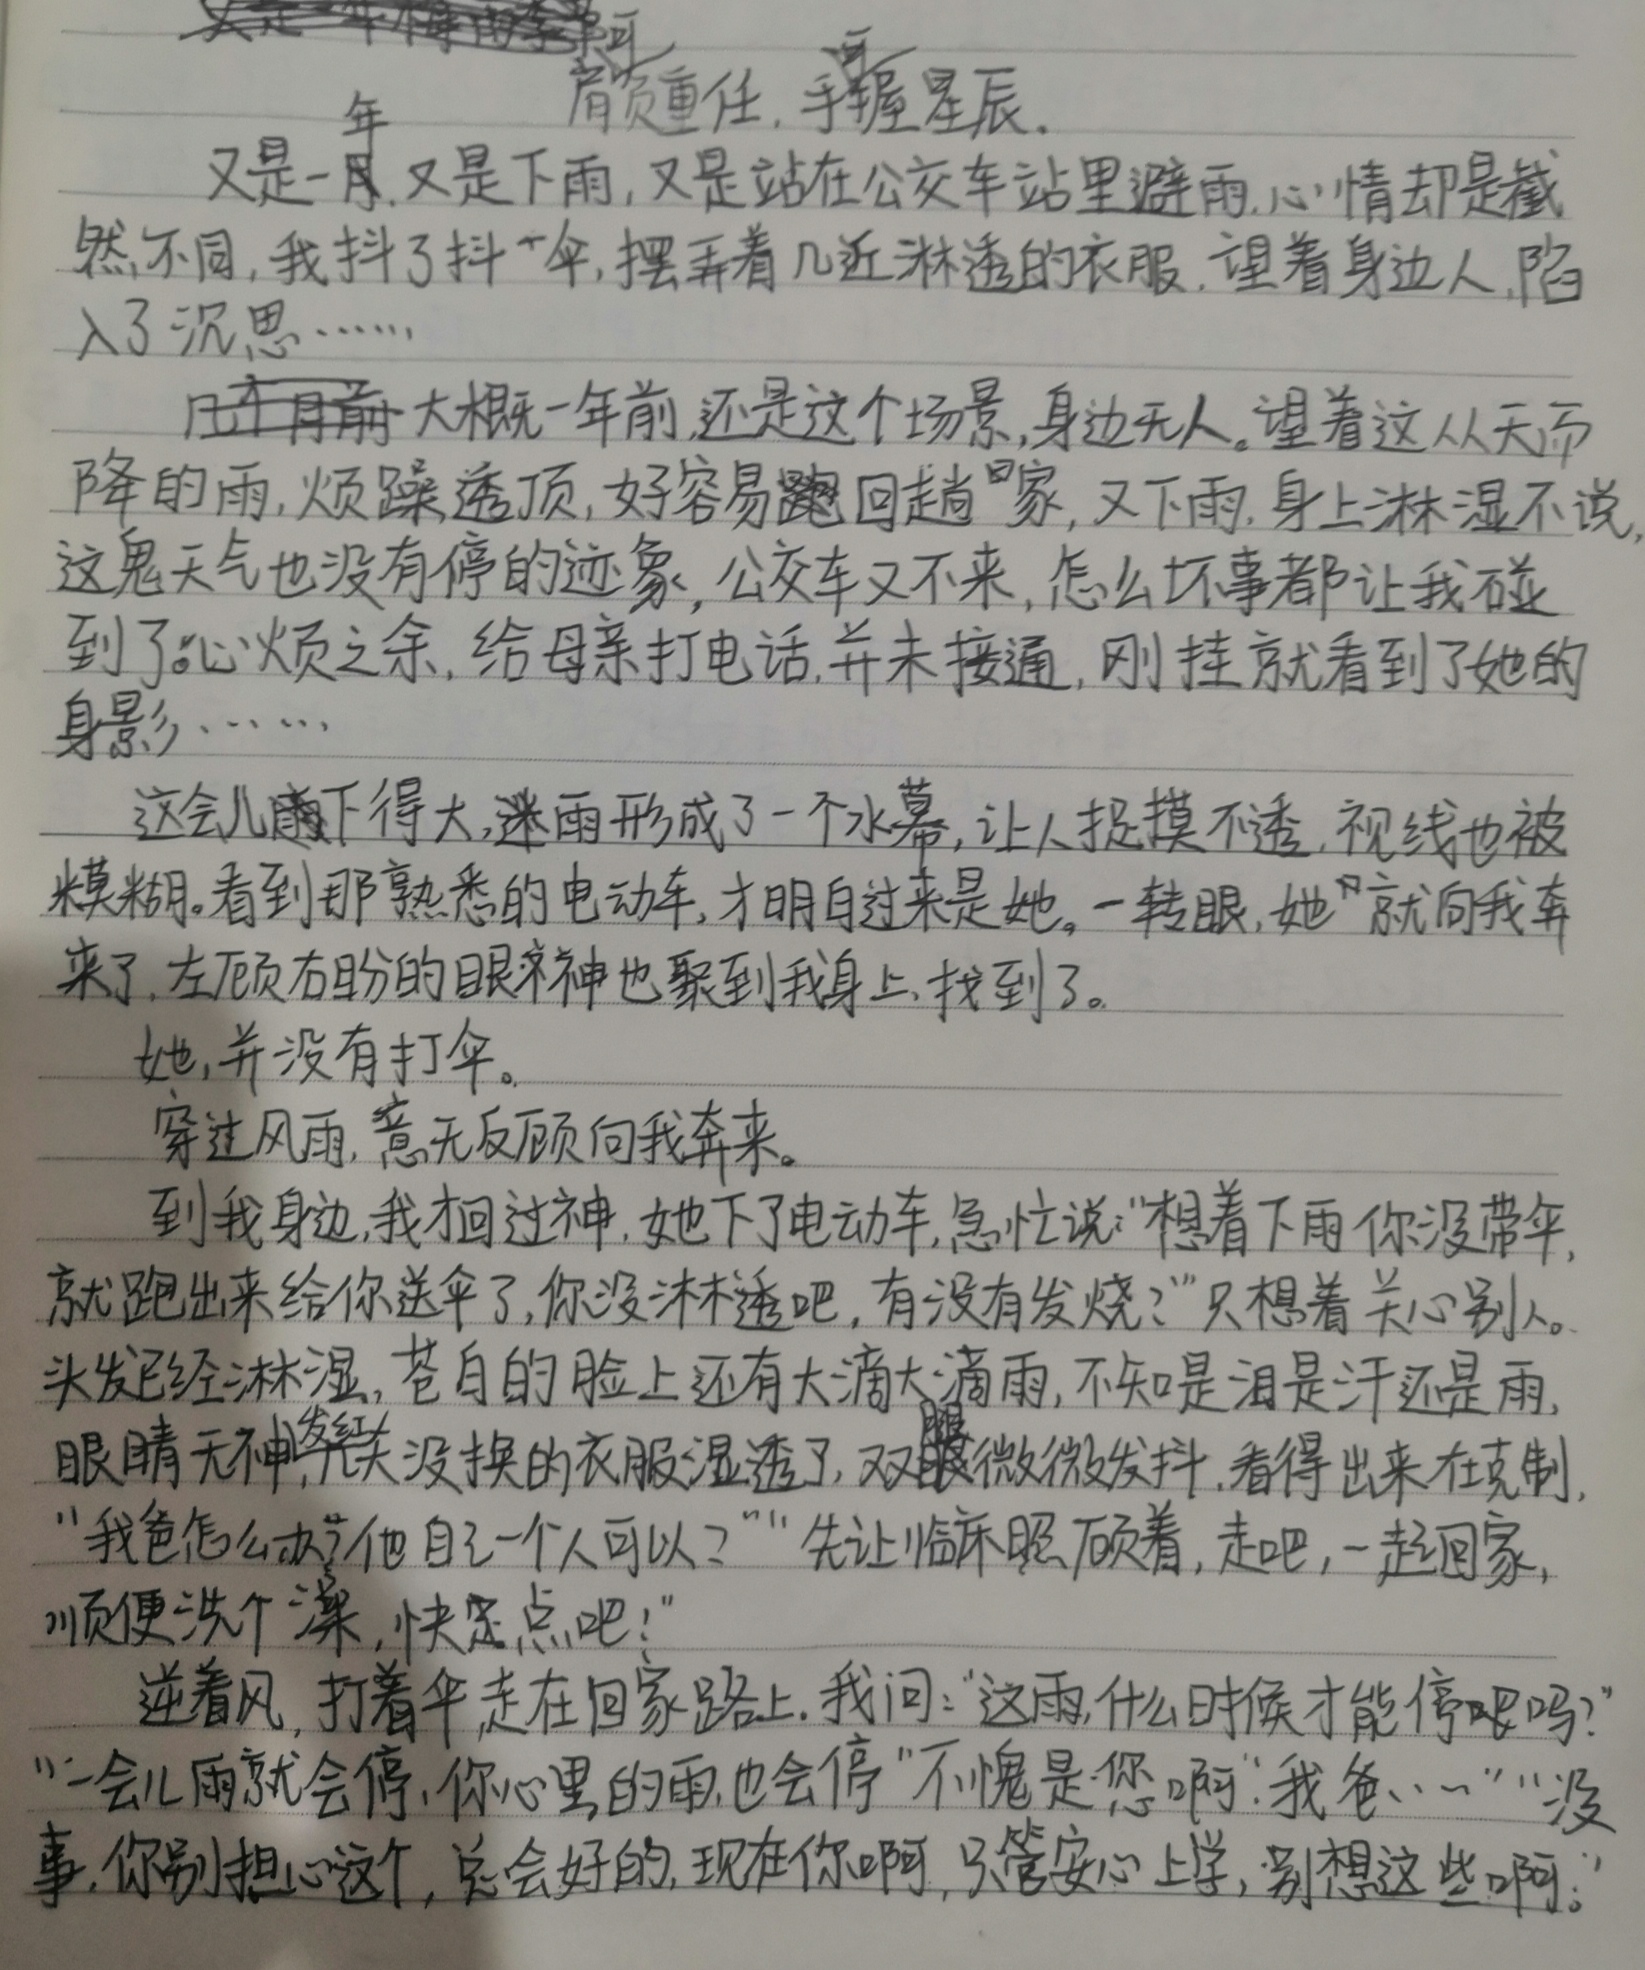 肩负重任，手握星辰.
又是一年，又是下雨，又是站在公交车站里避雨，心情却是截
然不同，我抖了抖伞，摆弄着几近淋透的衣服，望着身边人，陷
入了沉思……
大概一年前，还是这个场景，身边无人。望着这从天而
降的雨，烦躁透顶，好容易回趟家，又下雨，身上淋湿不说，
这鬼天气也没有停的迹象，公交车又不来，怎么坏事都让我碰
到了。心烦之余，给母亲打电话，并未接通，刚挂就看到了她的
身影……
这会儿下得大，雨形成了一个水幕，让人捉摸不透，视线也被
模糊。看到那熟悉的电动车，才明白过来是她。一转眼，她就向我奔
来了，左顾右盼的眼神也聚到我身上，找到了。
她，并没有打伞。
穿过风雨，意无反顾向我奔来。
到我身边，我才回过神，她下了电动车，急忙说：“想着下雨你没带伞，
就跑出来给你送伞了，你没淋透吧，有没有发烧？”只想着关心别人。
头发已经淋湿，苍白的脸上还有大滴大滴雨，不知是泪是汗还是雨，
眼睛无神发红，几天没换的衣服湿透了，双腿微微发抖，看得出来在克制，
“我爸怎么办？他自己一个人可以？”“先让临床照顾着，走吧，一起回家，
顺便洗个澡，快走点吧！”
逆着风，打着伞，走在回家路上，我问：“这雨，什么时候才能停吗？”
“一会儿雨就会停，你心里的雨，也会停”不愧是您啊“我爸……”“没
事，你别担心这个，总会好的，现在你啊，只管安心上学，别想这些啊。”